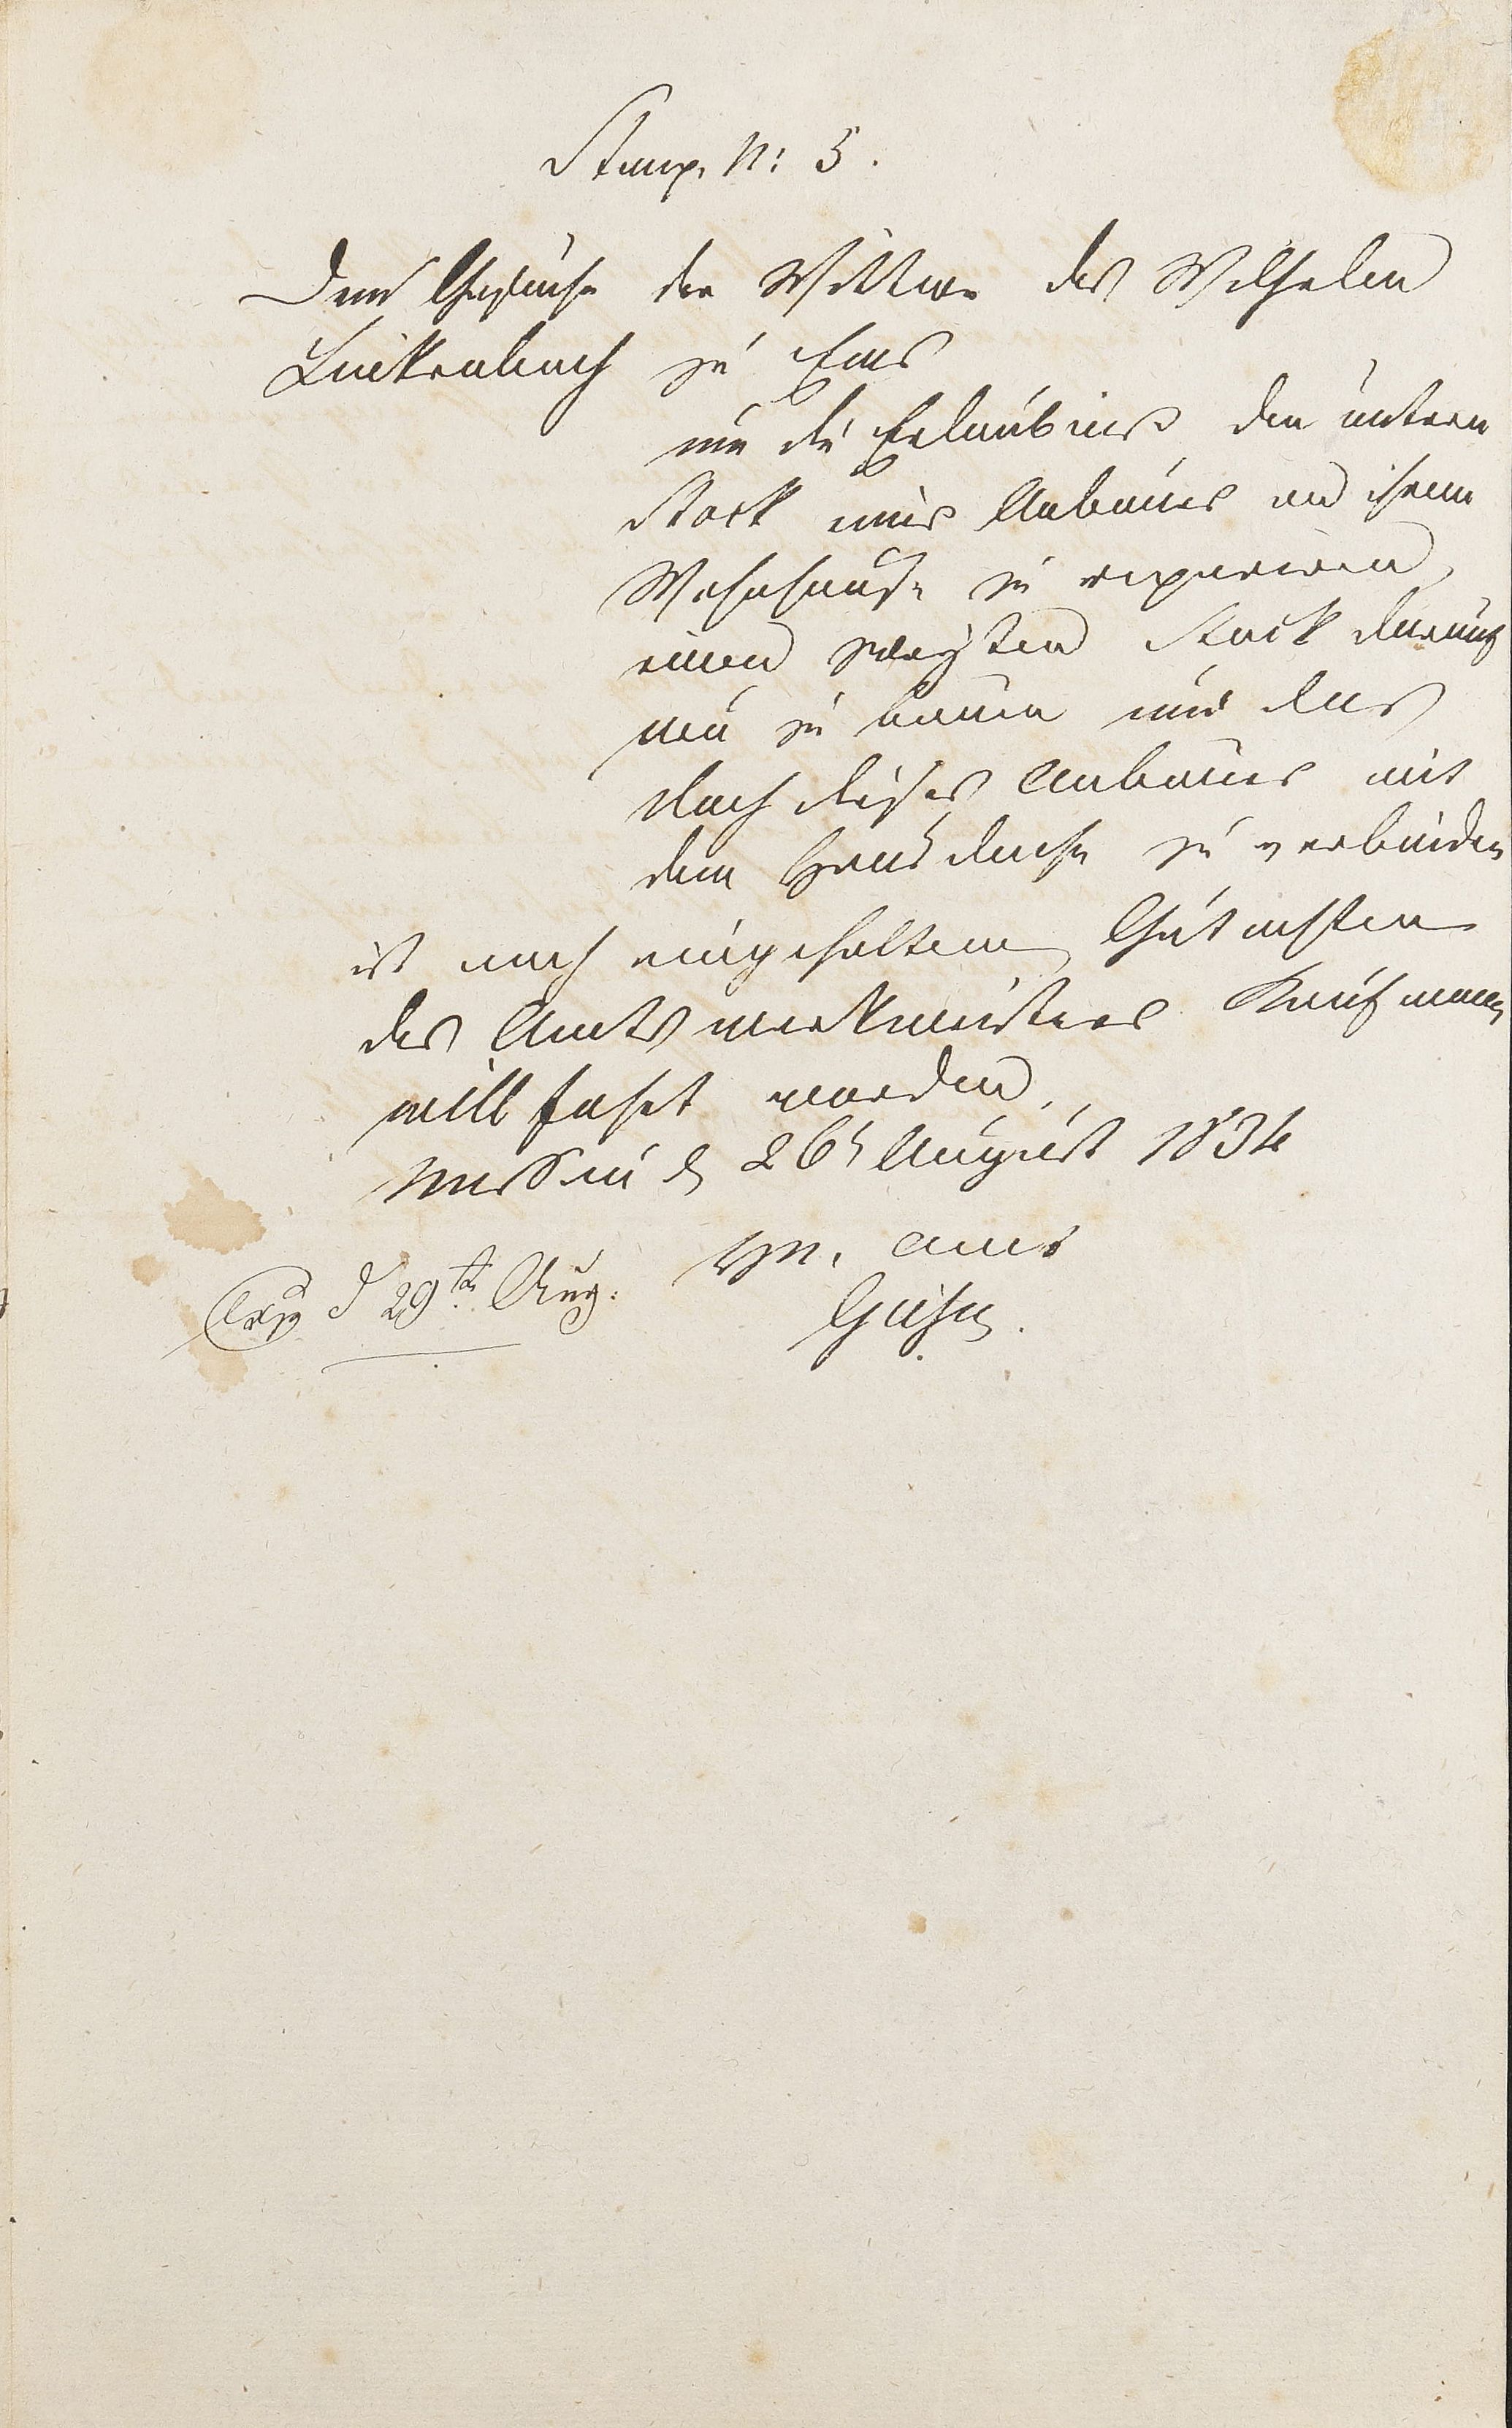 Stemp. N: 5.
Dem Gesuche der Wittwe des Wilhelm
Linkenbach zu Ems
um die Erlaubniß den untern
Stock eines Anbaues an ihrem
Wohnhause zu repariren,
einen zweyten Stock darauf
neu zu bauen und das
Dach dieses Anbaues mit
dem Hausdache zu verbinden
ist nach eingeholtem Gutachten
des Amtswerkmeisters Kaufmann
willfahrt worden.
Nassau d 26t August 1834
Amt
Exp d 29ten Aug: